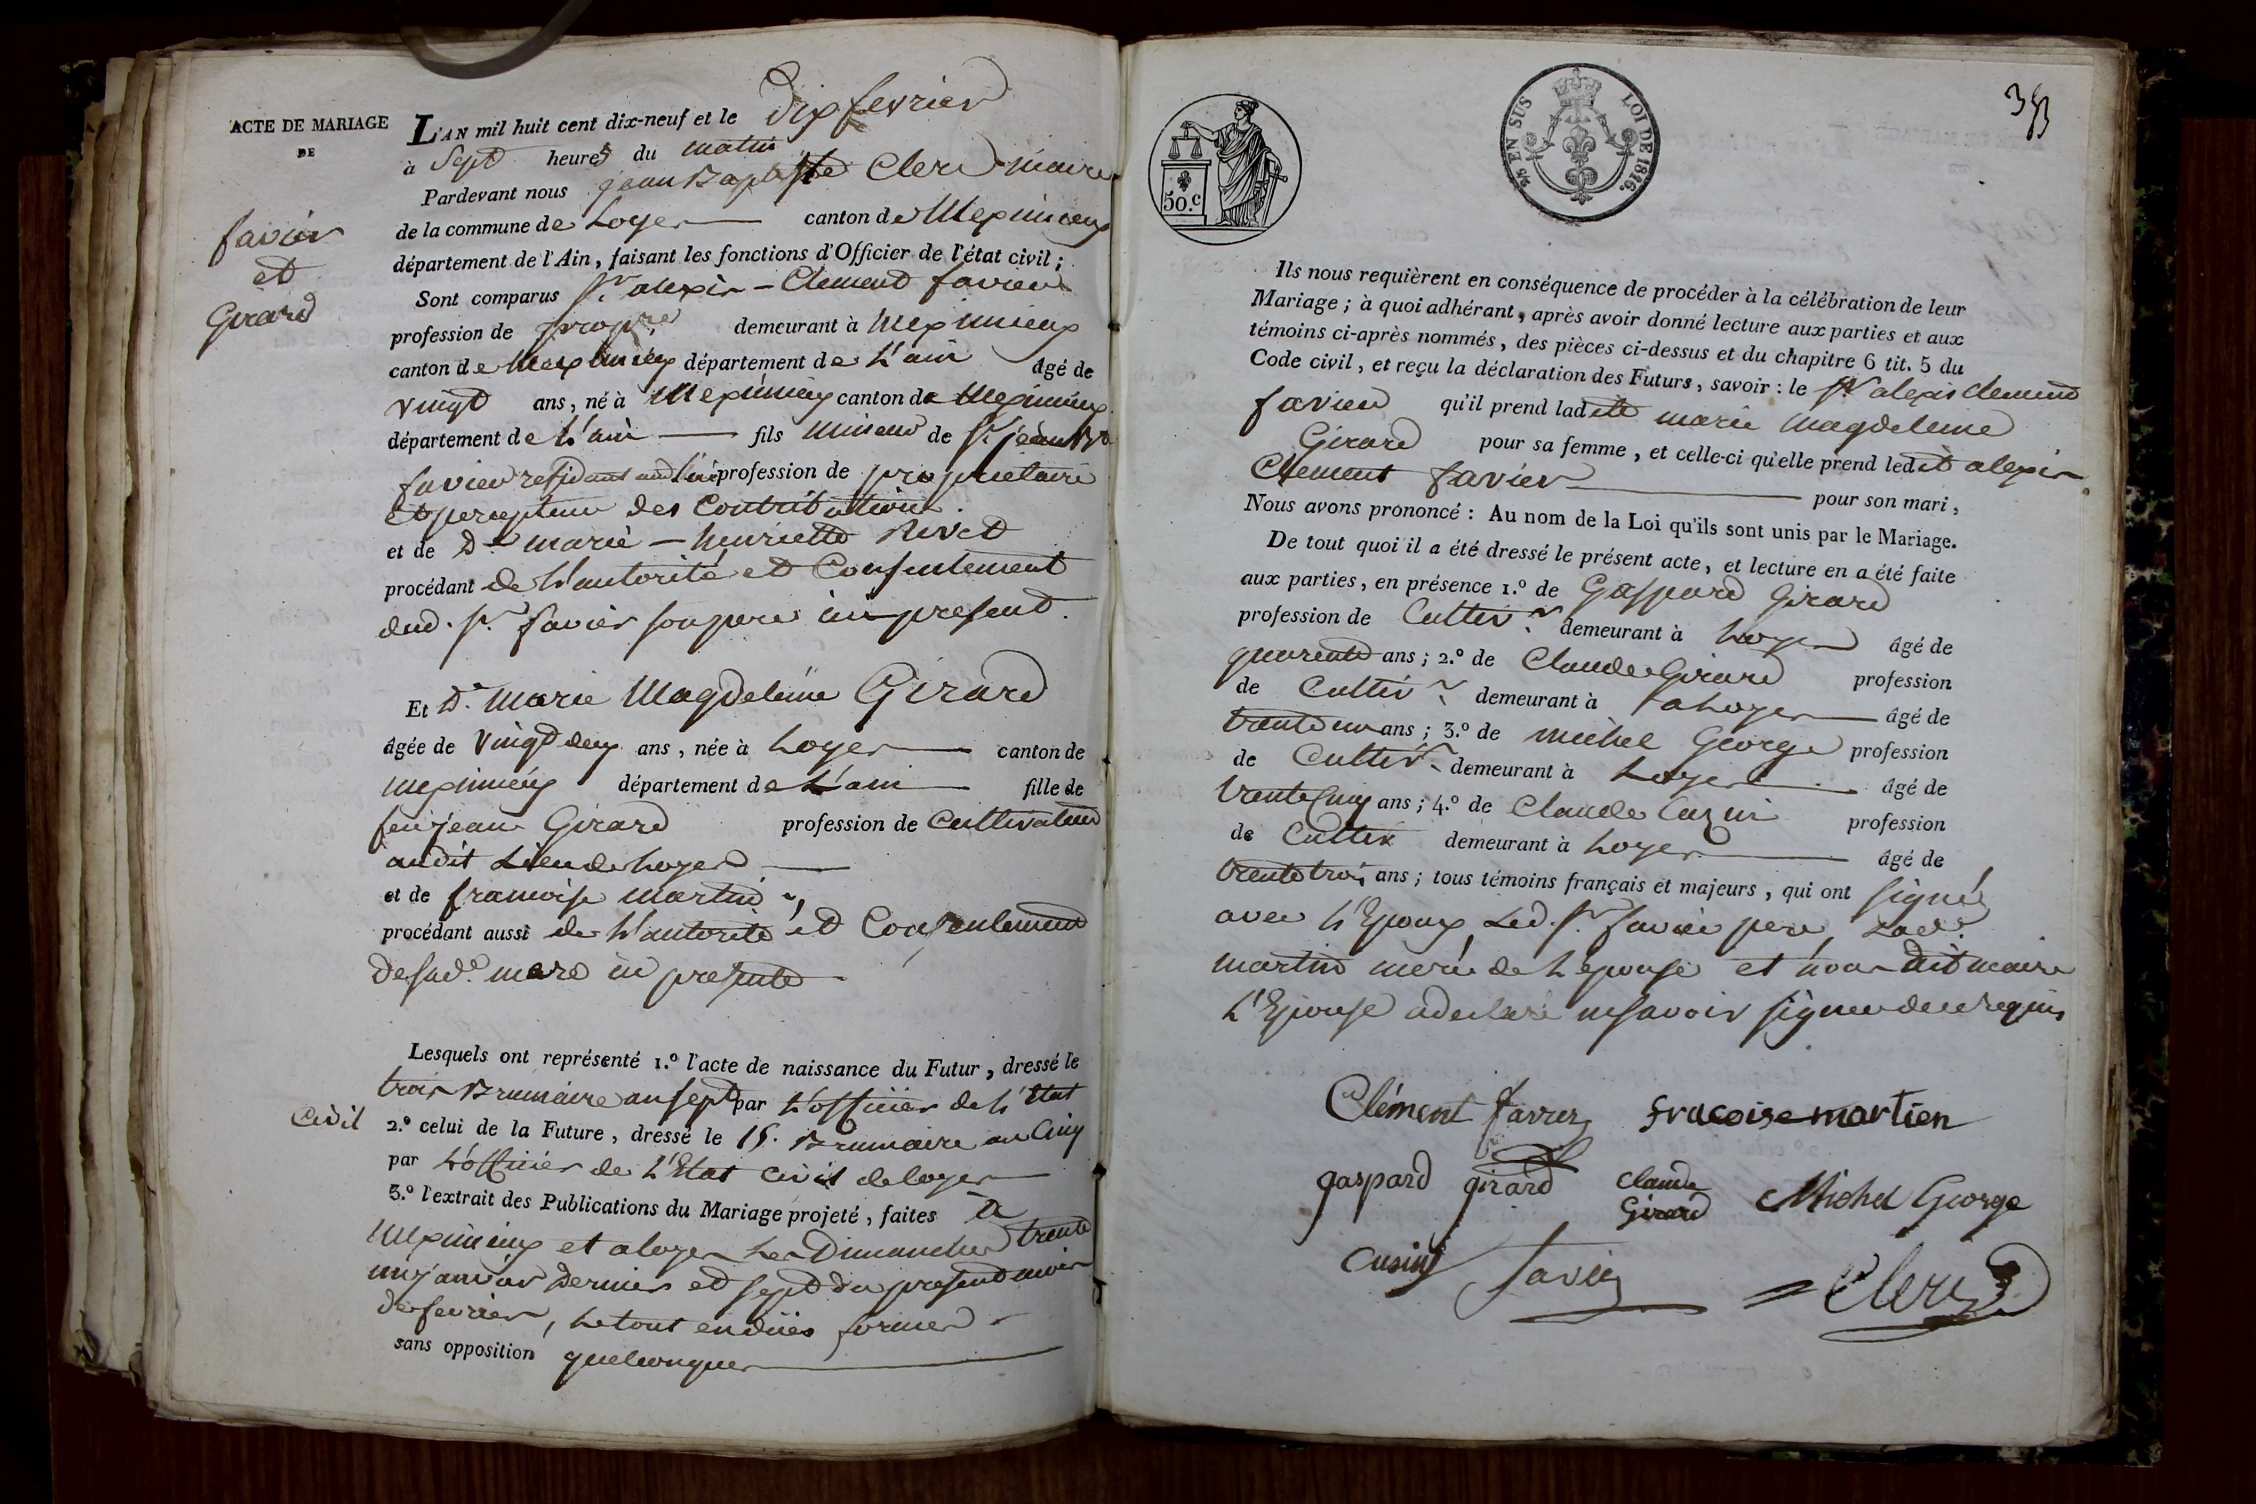 ACTE DE MARIAGE
DE
favier
et
Girard
L'AN mil huit cent dix-neuf et le dix fevrier
à Sept heures du matin
Pardevant nous jean Baptiste Clerc maire
de la commune de Loyes canton de Meximieux
département de l'Ain, faisant les fonctions d'Officier de l'état civil;
Sont comparus Sr. alexis - Clement favier
profession de propre. demeurant à Meximieux
canton de Meximieux département de L'ain âgé de
vingt ans, né à Meximieux canton de Meximieux
département de L'ain fils mineur de Sr. jean Bte
favier residant aud. lieu profession de proprietaire
et percepteur des Contributions
et de De marie - henriette Rivet
procédant de L'autorité et Consentement
dud. Sr. favier son pere ici present.
Et De. Marie Magdeleine Girard
âgée de vingt deux ans, née à Loyes canton de
meximieux département de L'ain fille de
feu jean Girard profession de Cultivateur
audit Lieu de Loyes
et de francoise martin
procédant aussi de L'autorité et Consentement
de sad.e mere ici presente
Lesquels ont représenté 1.º l'acte de naissance du Futur, dressé le
trois Brumaire an sept par L'officier de L'Etat
Civil
2.º celui de la Future, dressé le 15. Brumaire an Cinq
par L'officier de L'Etat civil de loyes
3.º l'extrait des Publications du Mariage projeté, faites à
Meximieux et a loyes les Dimanches trente
un janvier dernier et sept du present mois
de fevrier, Le tout en dües formes
sans opposition quelconques
50.c
25 EN SUS LOI DE 1816.
Ils nous requièrent en conséquence de procéder à la célébration de leur
Mariage; à quoi adhérant, après avoir donné lecture aux parties et aux
témoins ci-après nommés, des pièces ci-dessus et du chapitre 6 tit. 5 du
Code civil, et reçu la déclaration des Futurs, savoir: le Sr alexis Clement
favier qu'il prend ladite marie Magdeleine
Girard pour sa femme, et celle-ci qu'elle prend ledit alexis
Clement favier pour son mari,
Nous avons prononcé: Au nom de la Loi qu'ils sont unis par le Mariage.
De tout quoi il a été dressé le présent acte, et lecture en a été faite
aux parties, en présence 1.º de Gaspard Girard
profession de Cultivr. demeurant à Loyes âgé de
quarente ans; 2.º de Claude Girard profession
de Cultivr demeurant à a Loyes âgé de
trente un ans; 3.º de michel George profession
de Cultivr demeurant à Loyes âgé de
trente Cinq ans; 4.º de Claude Cuzin profession
de Cultiv demeurant à Loyes âgé de
trente trois ans; tous témoins français et majeurs, qui ont signé
avec L'Epoux Led. Sr. favier pere, Lad.e
martin mere de L'épouse et nous dit maire
L'Epouse a declaré ne savoir signer de ce requis
Clément favier fracoise martien
gaspard girard claude Girard Michel George
cusin favier Clerc